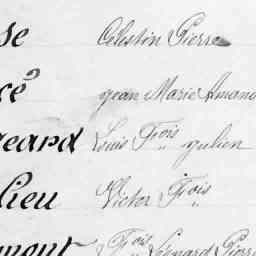 se Célestin Pierre
cé Jean Marie Amand
geard Louis Frois Julien
lieu Victor Frois
mont Frois Léonard Pierre